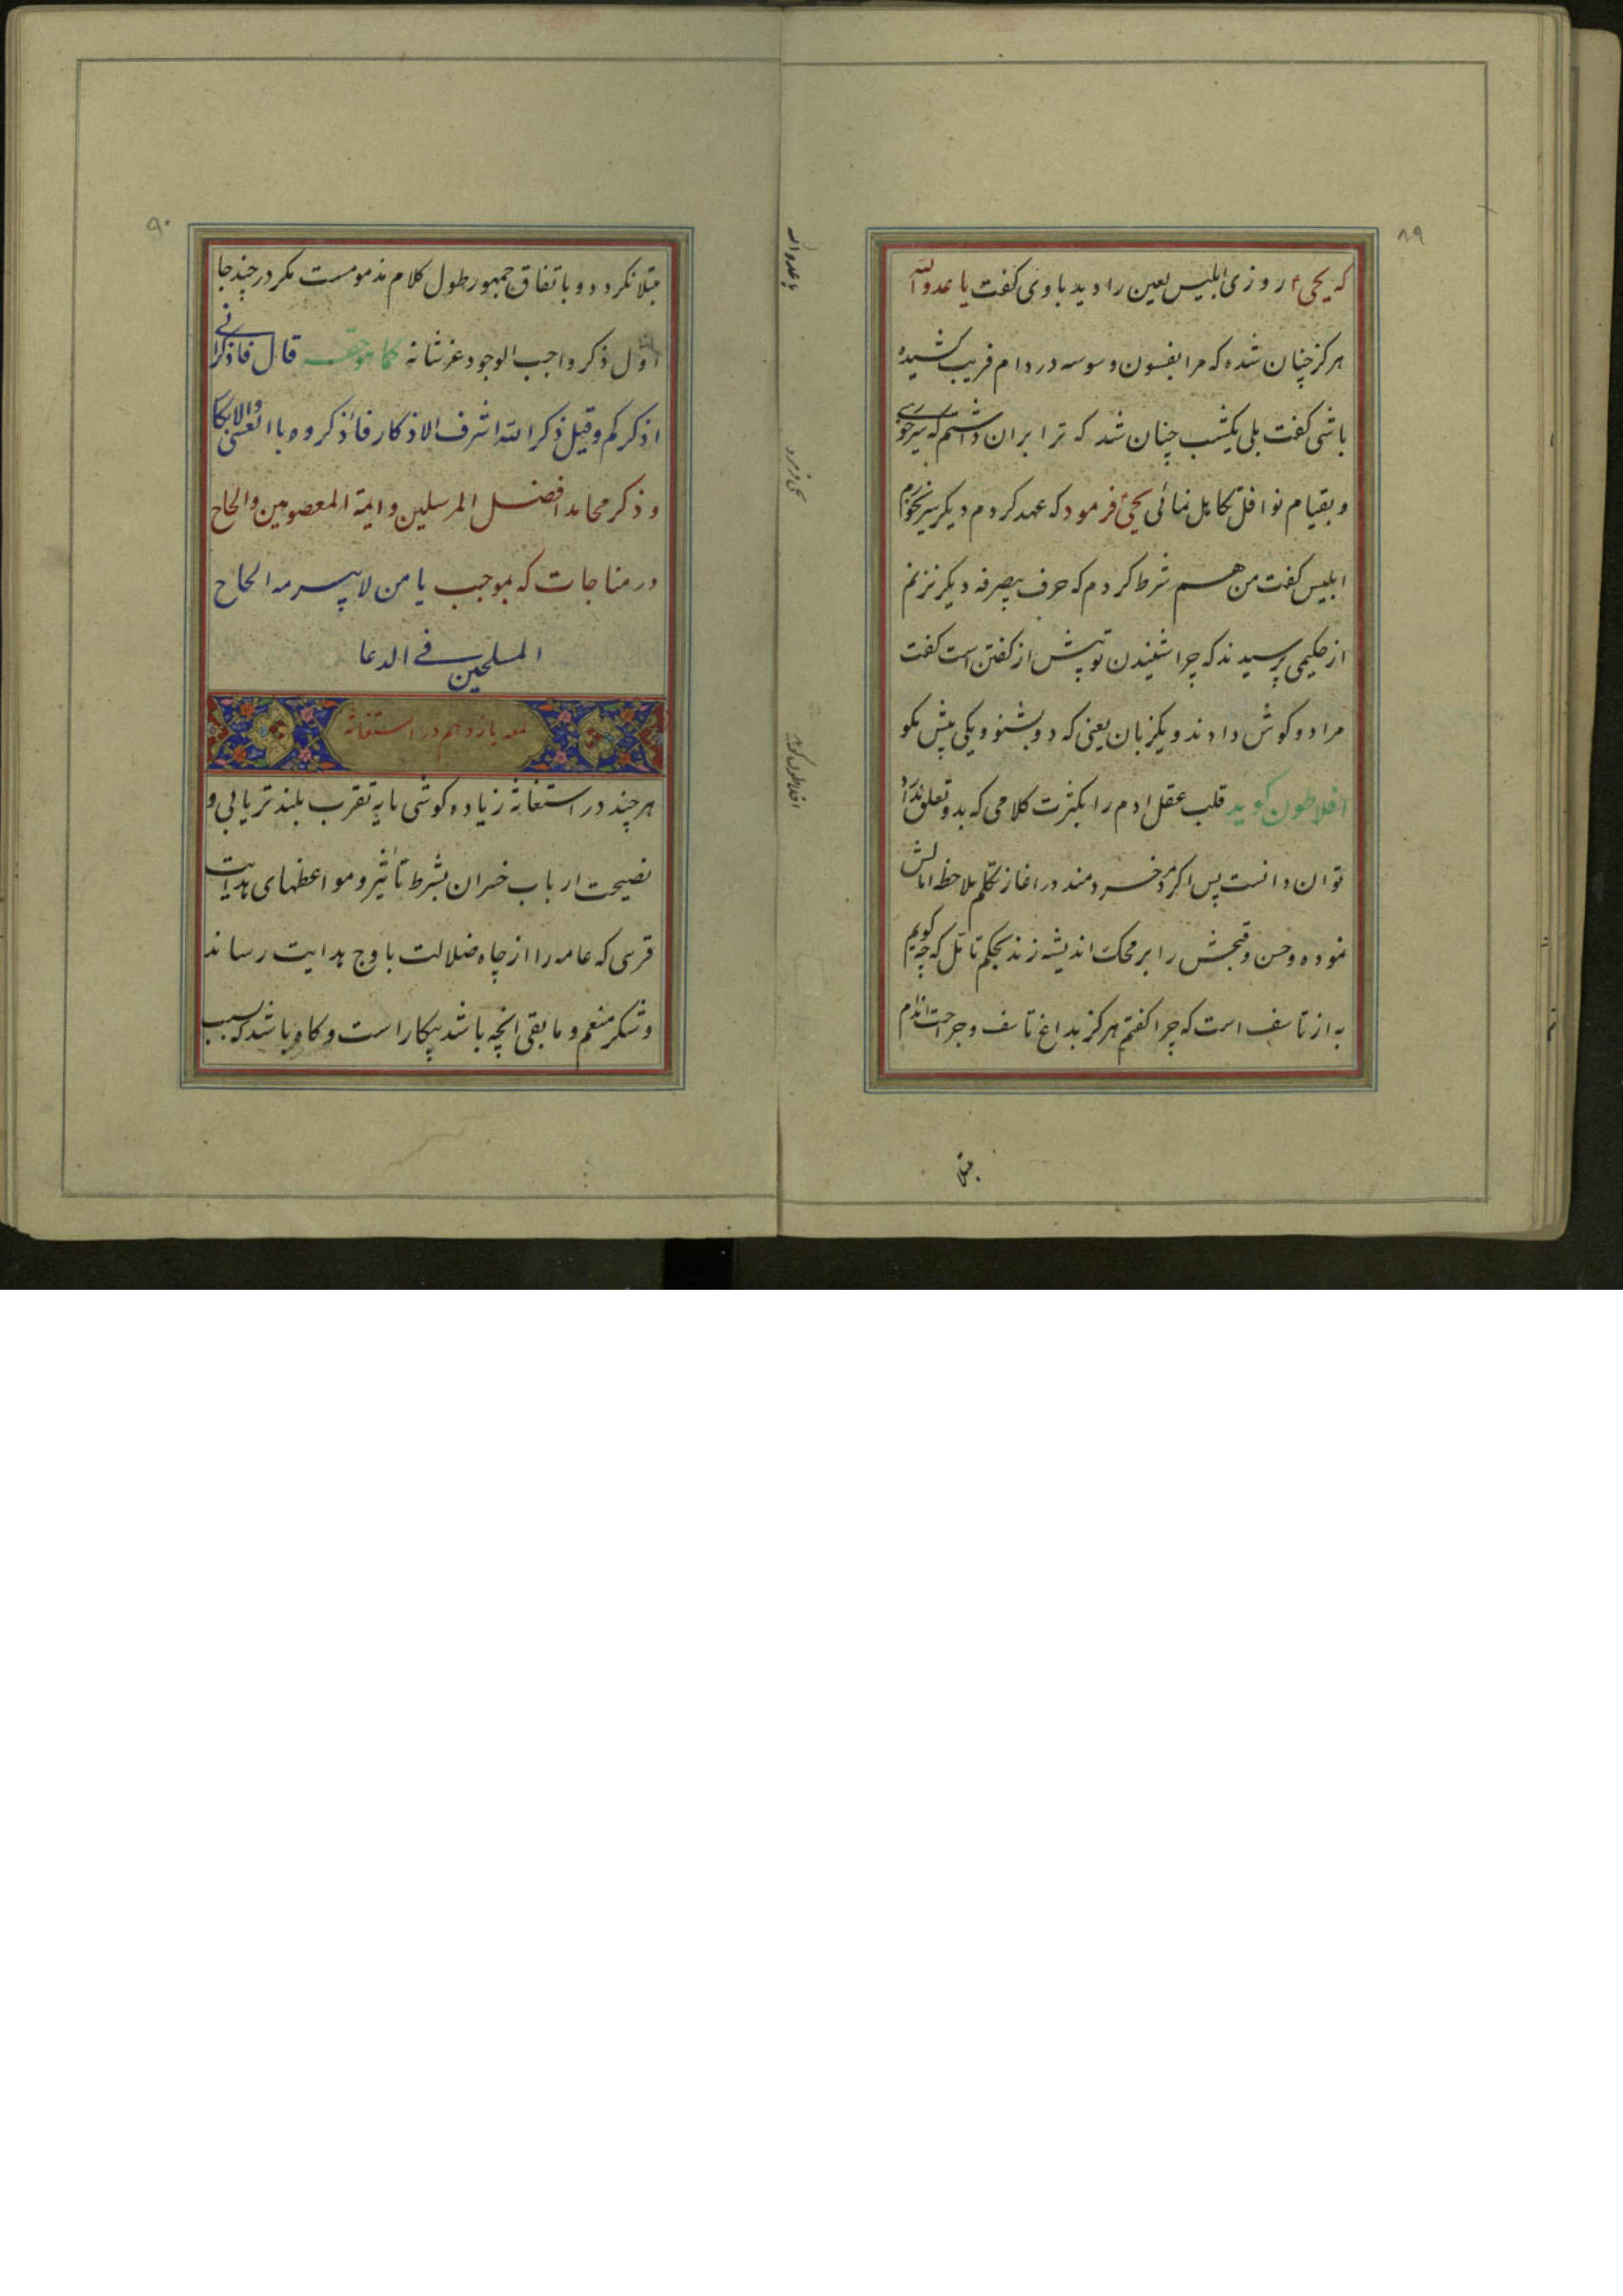 ۸۹
که یحیی ع روزی ابلیس لعین را دید باوی کفت یا عدو الله
هرکز چنان شده که مرا بفسون و وسوسه در دام فریب کشیده
باشی کفت بلی یکشب چنان شد که ترا بران داشتم که سیر خوری
و بقیام نوافل تکاهل نمائی یحیی ع فرمود که عهد کردم دیکر سیر نخورم
ابلیس کفت من هم شرط کردم که حرف بیصرفه دیکر نزنم
از حکیمی پرسیدند که چرا شنیدن تو پیش از کفتن است کفت
مرا دو کوش دادند و یکزبان یعنی که دو بشنو و یکی بیش مکو
افلاطون کوید قلب عقل ادم را بکثرت کلامی که بدو تعلق ندارد
توان دانست پس اکر مرد خردمند در اغاز تکلم ملاحظه امالش
نموده و حسن و قبحش را بر محک اندیشه زند بحکم تامّل که چه کویم
به از تاسف است که چرا کفتم هرکز بداغ تاسف و جراحت ندام
مبتلا
یا عدو الله
افلاطون کوید
۹۰
مبتلا نکردد و باتفاق جمهور طول کلام مذمومست مکر در چند جا
اوّل ذکر واجب الوجود عز شانه کما هو حقه قال فاذکرانی
اذکرکم و قیل ذکر الله اشرف الاذکار فاذکروه باالعشی والابکا
و ذکر محامد افضل المرسلین و ایمة المعصومین والحاح
در مناجات که بموجب یا من لا یبرمه الحاح
الملحین فی الدعا
لمعه یازدهم در استغاثه
هرچند در استغاثه زیاده کوشی مایه تقرب بلندتر یابی و
نصیحت ارباب خسران بشرط تأثیر و مواعظهای هدایت
قرسی که عامه را از چاه ضلالت باوج هدایت رساند
و شکر منعم و مابقی انچه باشد بیکار است و کاه باشد که بسبب